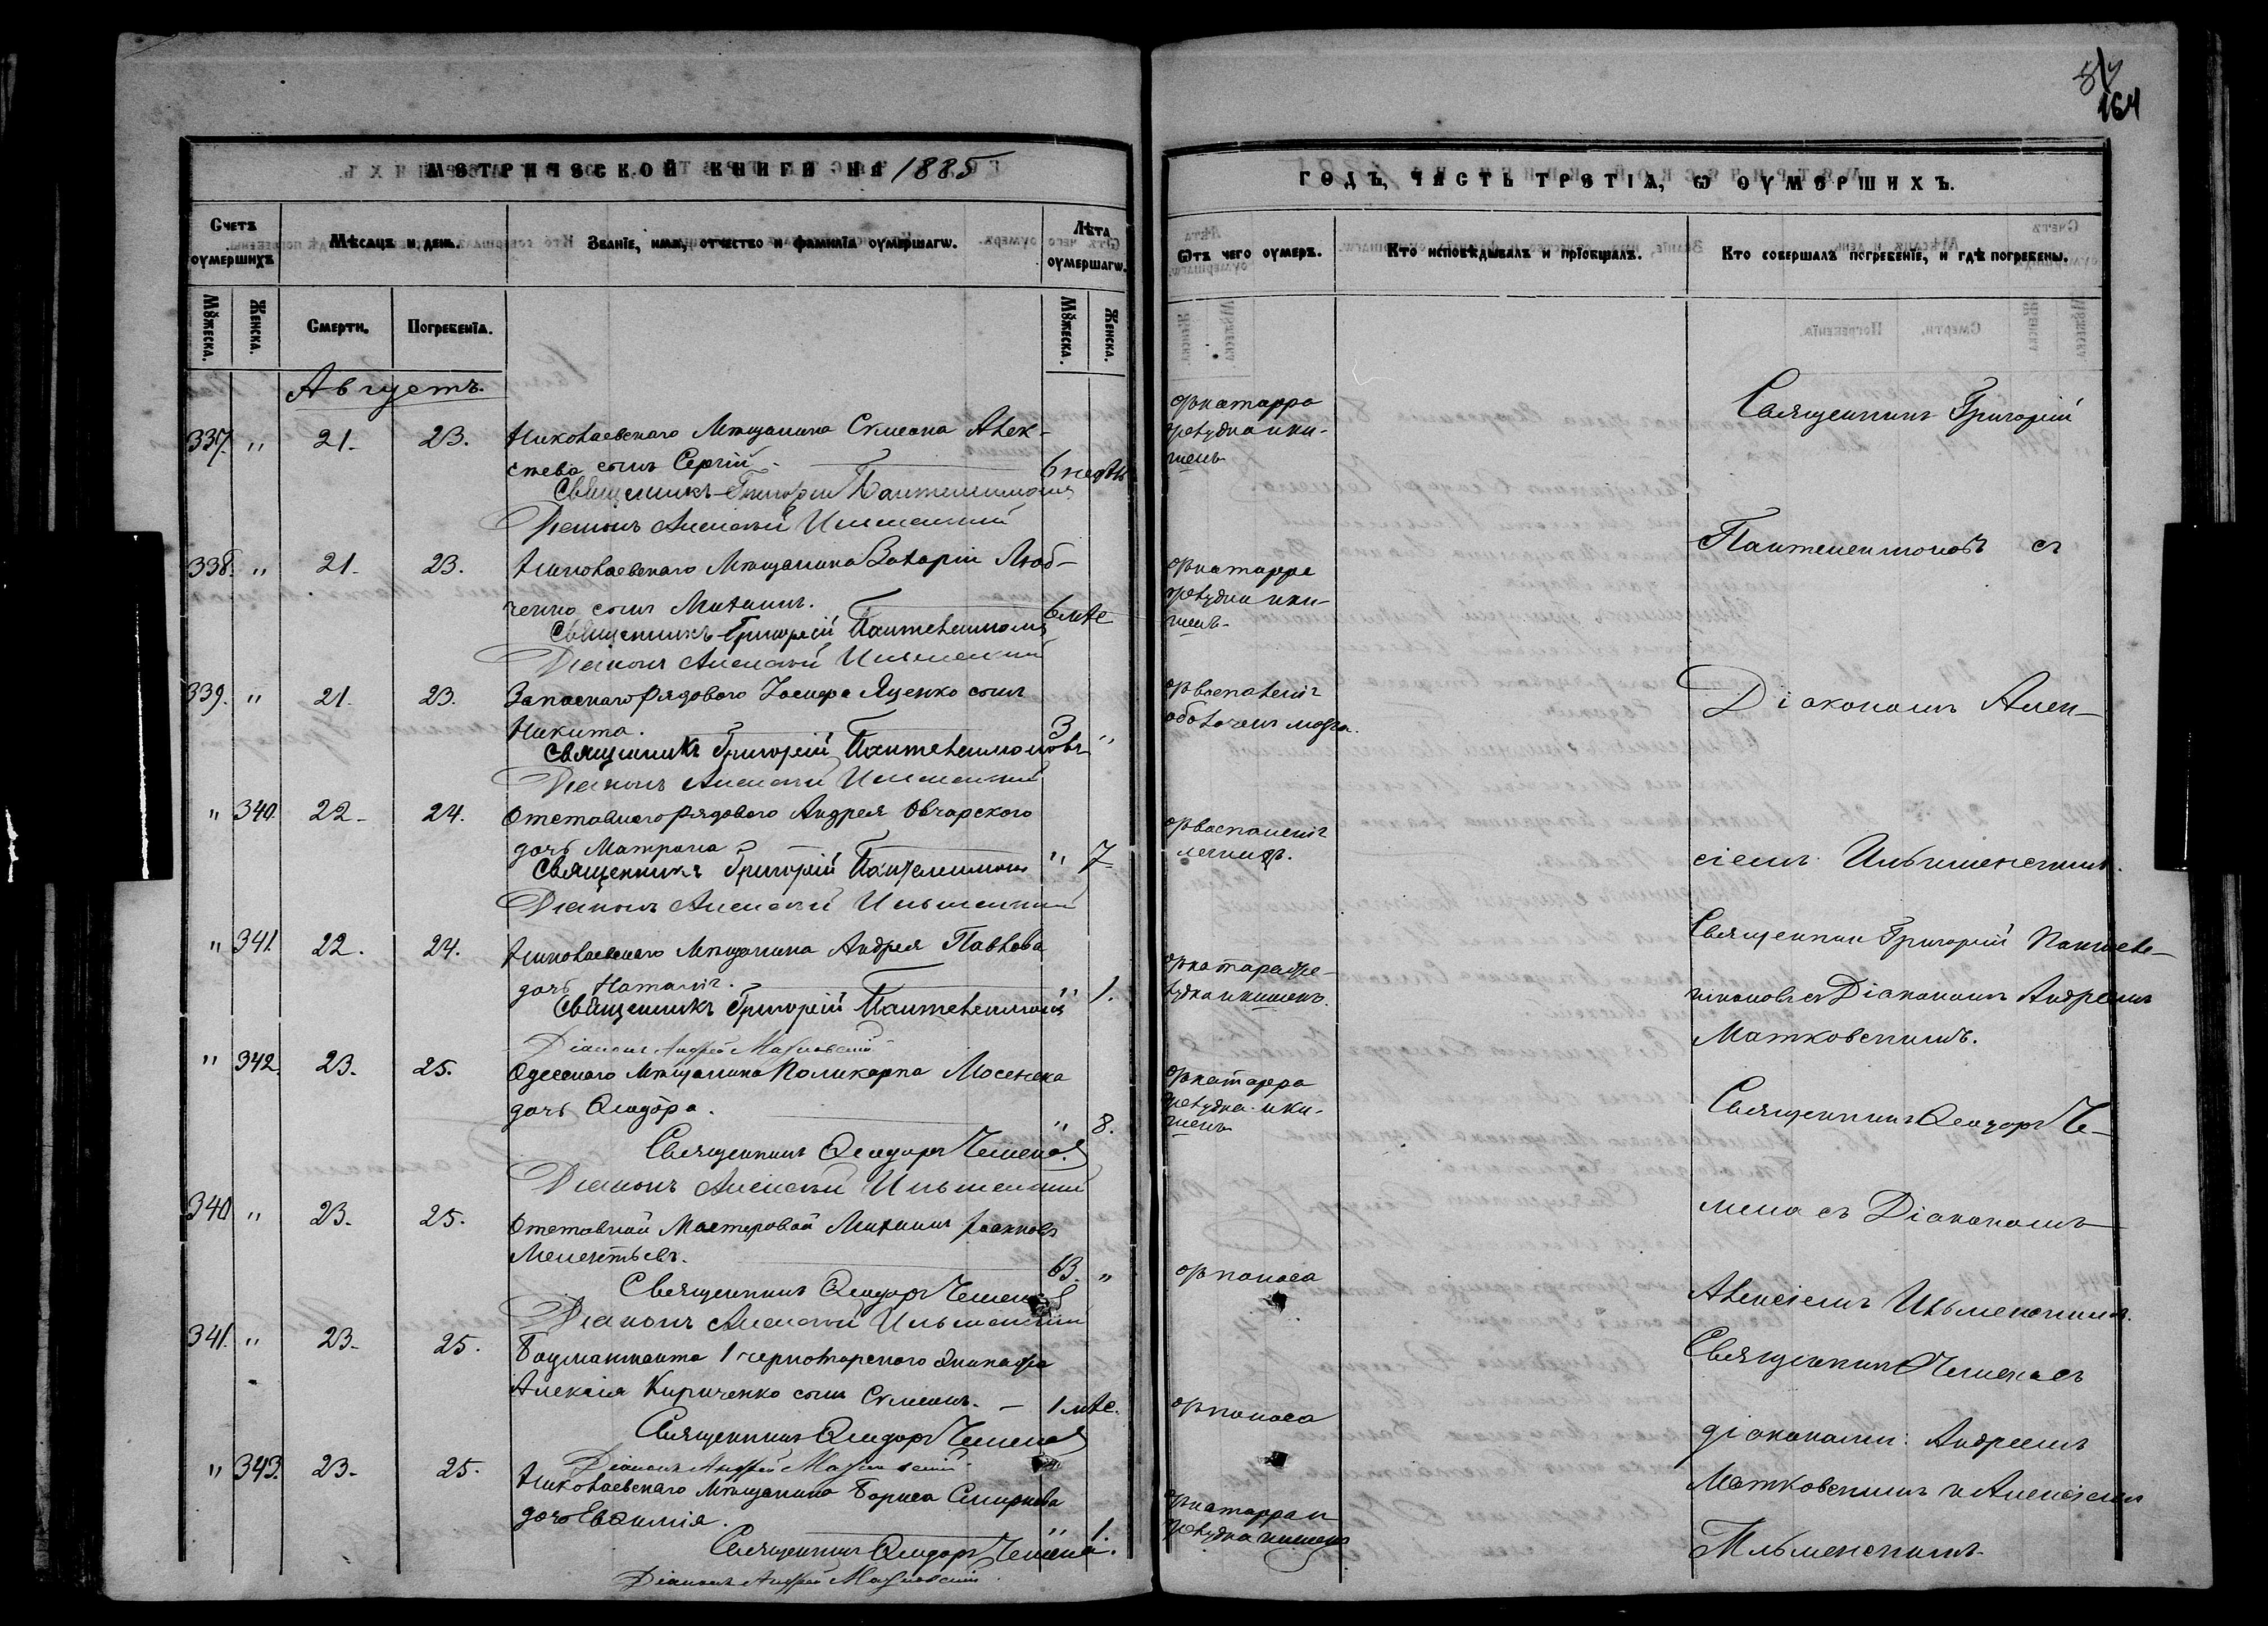 164
МЕТРИЧЕСКОЙ КНИГИ НА 1885
ГОДЪ, ЧАСТЬ ТРЕТІѦ, Ѡ ОУМЕРШИХЪ.
Счетъ оумершихъ
Мѣсяцъ и день.
Званіе, имя, отчество и фамилія оумершагѡ.
Лѣта оумершагѡ.
Ѿтъ чего оумеръ.
Кто исповѣдывалъ и пріобщалъ.
Кто совершалъ погребеніе, и гдѣ погребены.
Мꙋжеска.
Женска.
Смерти.
Погребенїѧ.
Мꙋжеска.
Женска.
Августъ.
337. " 21. 23. Николаевскаго Мѣщанина Симеона Алек-
сѣева сынъ Сергій. 6 недѣль
отъ катарра
желудка и ки-
шекъ
Священникъ Григорій Пантелеимоновъ
Діаконъ Алексій Ильменскій
338. " 21. 23. Николаевскаго Мѣщанина Захарія Люб-
ченко сынъ Михаилъ. 6 мѣс
отъ катарра
желудка и ки-
шекъ
Священникъ Григорій Пантелеимоновъ
Діаконъ Алексій Ильменскій
339. " 21. 23. Запаснаго рядового Іосифа Яценко сынъ
Никита. 3 "
отъ воспаленія
оболочекъ мозга.
Священникъ Григорій Пантелеимоновъ
Діаконъ Алексій Ильменскій
Священникъ Григорій
Пантелеимоновъ съ
Діакономъ Алек-
сіемъ Ильменскимъ.
" 340. 22. 24. Отставнаго рядового Андрея Овчарского
дочь Матрона " 7
отъ воспаленія
легкихъ.
Священникъ Григорій Пантелеимоновъ
Діаконъ Алексій Ильменскій
" 341. 22. 24. Николаевскаго Мѣщанина Андрея Павлова
дочь Наталія. " 1.
отъ катара же-
лудка и кишекъ.
Священникъ Григорій Пантелеимоновъ
Діаконъ Андрей Матковскій
Священник Григорій Пантеле-
имоновъ съ Діакономъ Андреемъ
Матковскимъ.
" 342. 23. 25. Одесскаго Мѣщанина Поликарпа
дочь Ѳеодора. " 8.
отъ катарра
желудка и ки-
шекъ
Священникъ Ѳеодоръ Чемена
Діаконъ Алексій Ильменскій
340 " 23. 25. Отставной Мастеровой Михаилъ Іоанновъ
Мелентьевъ. 63. "
отъ поноса
Священникъ Ѳеодоръ Чемена
Діаконъ Алексій Ильменскій
Священникъ Ѳеодоръ Че-
мена съ Діакономъ
Алексіемъ Ильменскимъ.
341. " 23. 25. Боцманмата 1 черноморского экипажа
Алексія Кириченко сынъ Симеонъ. 1 мѣс.
отъ поноса
Священникъ Ѳеодоръ Чемена
Діаконъ Андрей Матковскій
" 343. 23. 25. Николаевскаго Мѣщанина Бориса Смирнова
дочь Евѳимія. " 1.
отъ катарра
желудка кишекъ
Священникъ Ѳеодоръ Чемена.
Діаконъ Андрей Матковскій
Священникъ Чемена съ
діаконами: Андреемъ
Матковскимъ и Алексіемъ
Ильменскимъ.